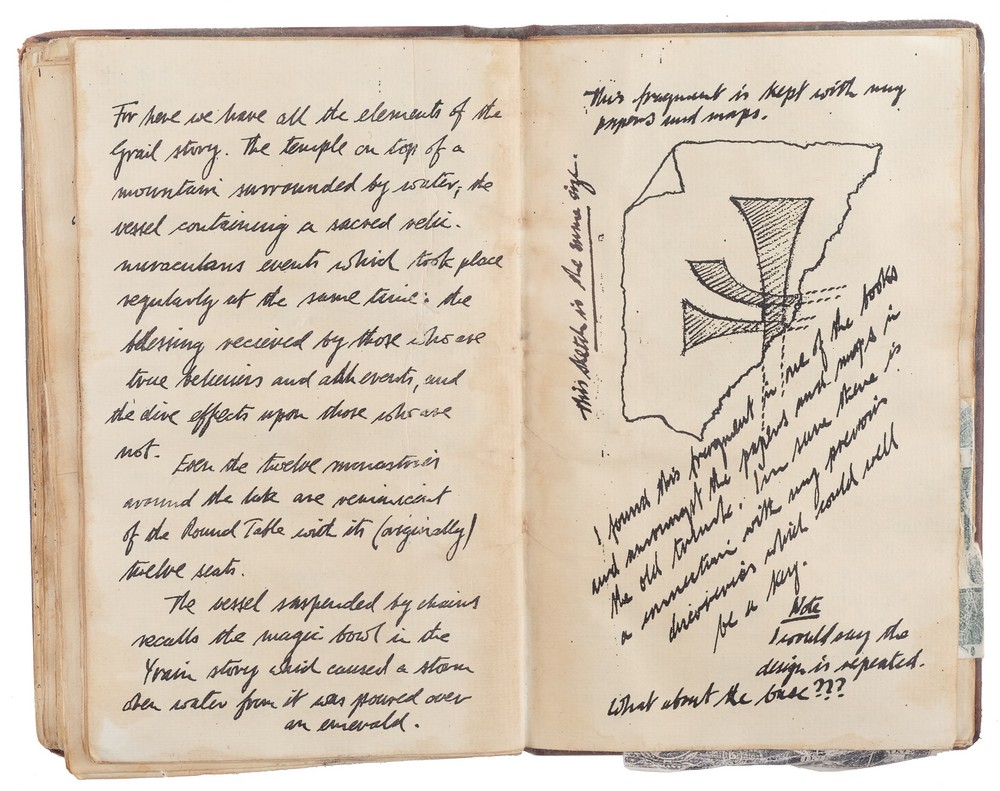 For here we have all the elements of the
Grail story. The temple on top of a
mountain surrounded by water; the
vessel containing a sacred relic.
miraculous events which took place
regularly at the same time: the
blessing recieved by those who are
true believers and
the dire effects upon those who are
not.
Even the twelve monasteries
around the lake are reminiscent
of the Round Table with its (originally)
twelve seats.
The vessel suspended by chains
recalls the magic bowl in the
Yvain story which caused a storm
when water from it was poured over
an emerald.
This fragment is kept with my
papers and maps.
this sketch is the same size.
I found this fragment in one of the books
and amongst the papers and maps in
the old trunk. I'm sure there is
a connection with my previous
discoveries which could well
be a key.
Note
I would say the
design is repeated.
What about the base???